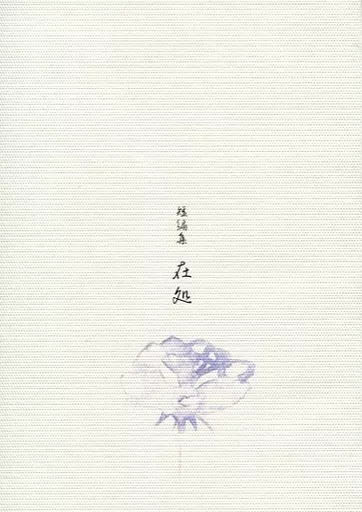 短編集
在処